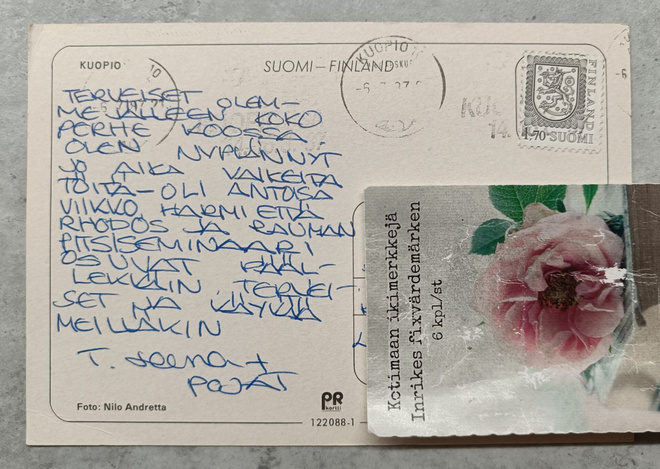 KUOPIO
SUOMI–FINLAND
KUOPIO
FINLAND
1,70 SUOMI
TERVEISET OLEM-
ME JÄLLEEN KOKO
PERHE KOOSSA.
OLEN NYPLÄNNYT
JO AIKA VAIKEITA
TÖITÄ-OLI ANTOISA
VIIKKO, HARMI ETTÄ
RHODOS JA RAUMAN
PITSISEMINAARI
OSUVAT PÄÄL-
LEKKÄIN. TERVEI-
SET NA KÄYKÄÄ
MEILLÄKIN
T. Leena +
POJAT
Foto: Nilo Andretta
PR
kortti
122088-1
Kotimaan ikimerkkejä
Inrikes fixvärdemärken
6 kpl/st